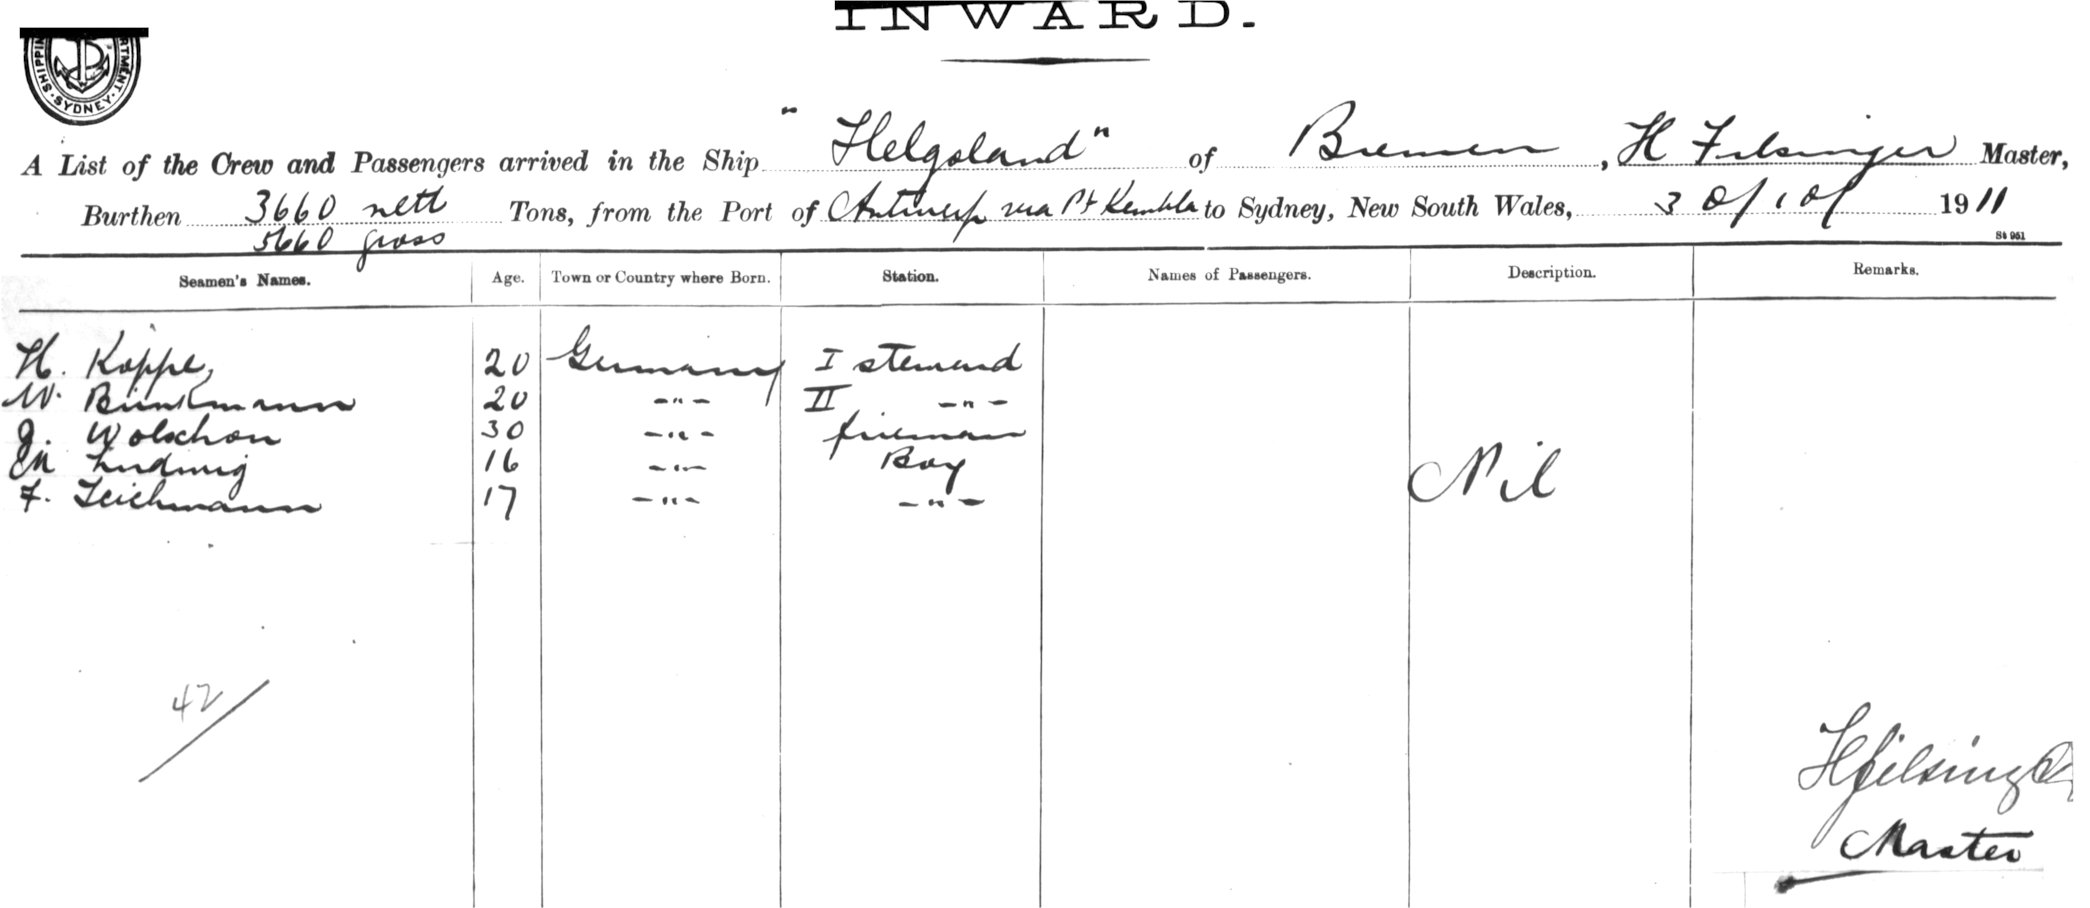 INWARD.
SHIPPIN RTMENT. SYDNEY.
A List of the Crew and Passengers arrived in the Ship "Helgoland" of Bremen, H Filsinger Master,
Burthen 3660 nett Tons, from the Port of Antwerp via Pt Kembla to Sydney, New South Wales, 30/10/ 1911
5660 gross
St 951
Seamen's Names. Age. Town or Country where Born. Station. Names of Passengers. Description. Remarks.
H. Koppe, 20 Germany I steward
W. Brinkmann 20 -"- II -"-
J. Wolschon 30 -"- fireman
M Ludwig 16 -"- Boy
F. Teichmann 17 -"- -"-
Nil
42
HFilsinger
Master